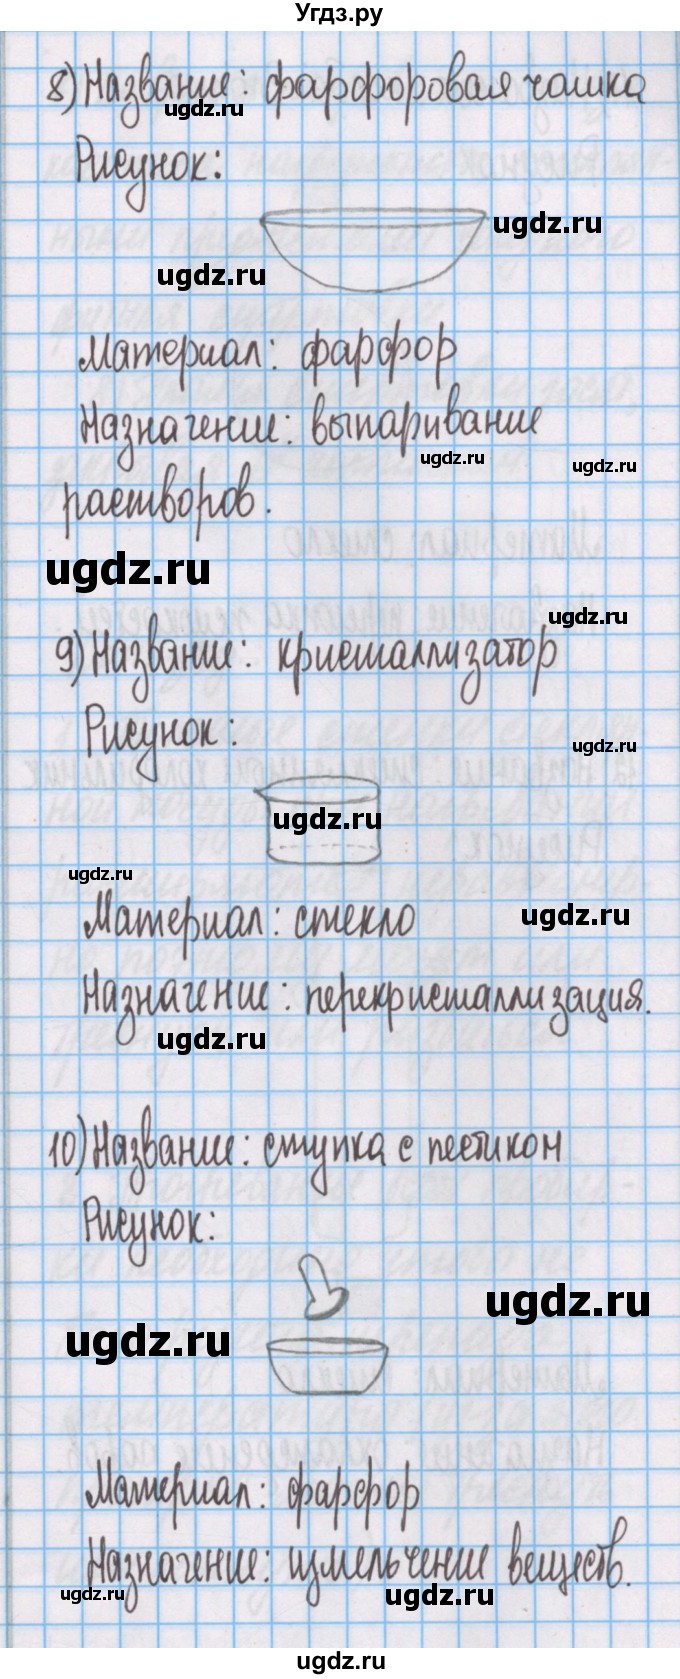 Угдз.ру
8) Название: фарфоровая чашка
ugdz.ru
Рисунок:
ugdz.ru
ugdz.ru
Материал: фарфор
Назначение: выпаривание
ugdz.ru
ugdz.ru
растворов.
ugdz.ru
ugdz.ru
9) Название: кристаллизатор
Рисунок:
ugdz.ru
ugdz.ru
ugdz.ru
Материал: стекло
ugdz.ru
Назначение: перекристаллизация.
ugdz.ru
10) Название: ступка с пестиком
Рисунок:
ugdz.ru
ugdz.ru
Материал: фарфор
Назначение: измельчение веществ.
ugdz.ru
ugdz.ru
ugdz.ru